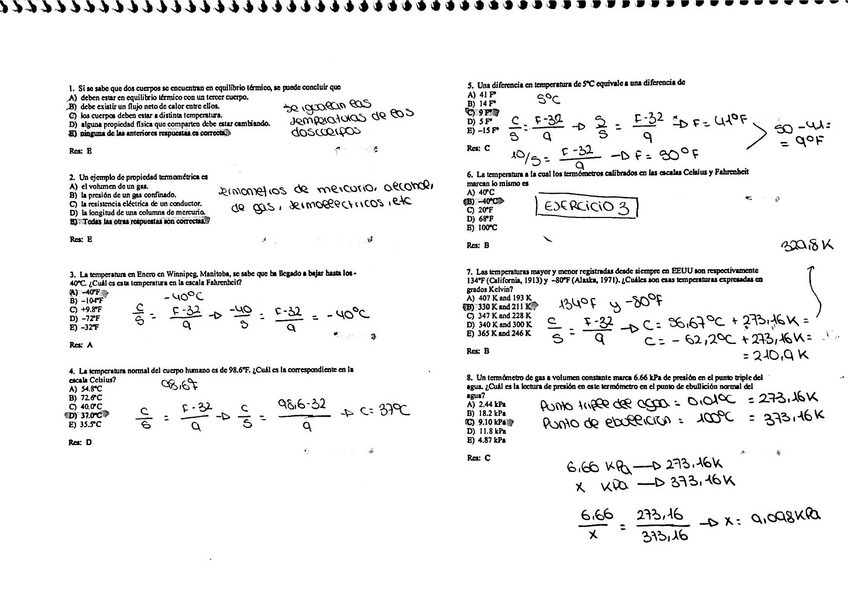 1. Si se sabe que dos cuerpos se encuentran en equilibrio térmico, se puede concluir que
A) deben estar en equilibrio térmico con un tercer cuerpo.
B) debe existir un flujo neto de calor entre ellos.
C) los cuerpos deben estar a distinta temperatura.
D) alguna propiedad física que comparten debe estar cambiando.
E) ninguna de las anteriores respuestas es correcta
se igualan las
temperaturas de los
dos cuerpos
Res: E
2. Un ejemplo de propiedad termométrica es
A) el volumen de un gas.
B) la presión de un gas confinado.
C) la resistencia eléctrica de un conductor.
D) la longitud de una columna de mercurio.
E) Todas las otras respuestas son correctas.
termometros de mercurio, alcohol,
de gas, termoelectricos, etc
Res: E
3. La temperatura en Enero en Winnipeg, Manitoba, se sabe que ha llegado a bajar hasta los -
40ºC. ¿Cuál es esta temperatura en la escala Fahrenheit?
A) -40ºF
B) -104ºF
C) +9.8ºF
D) -72ºF
E) -32ºF
-40ºC
C/5 = F-32/9 → -40/5 = F-32/9 = -40ºC
Res: A
4. La temperatura normal del cuerpo humano es de 98.6ºF. ¿Cuál es la correspondiente en la
escala Celsius?
A) 54.8ºC
B) 72.6ºC
C) 40.0ºC
D) 37.0ºC
E) 35.5ºC
98,6F
C/5 = F-32/9 → C/5 = 98,6-32/9 → C= 37ºC
Res: D
5. Una diferencia en temperatura de 5ºC equivale a una diferencia de
A) 41 Fº
B) 14 Fº
C) 9 Fº
D) 5 Fº
E) -15 Fº
5ºC
C/5 = F-32/9 → 5/5 = F-32/9 → F= 41ºF
10/5 = F-32/9 → F= 50ºF
50-41=
= 9ºF
Res: C
6. La temperatura a la cual los termómetros calibrados en las escalas Celsius y Fahrenheit
marcan lo mismo es
A) 40ºC
B) -40ºC
C) 20ºF
D) 68ºF
E) 100ºC
EJERCICIO 3
Res: B
329,8 K
7. Las temperaturas mayor y menor registradas desde siempre en EEUU son respectivamente
134ºF (California, 1913) y -80ºF (Alaska, 1971). ¿Cuáles son esas temperaturas expresadas en
grados Kelvin?
A) 407 K and 193 K
B) 330 K and 211 K
C) 347 K and 228 K
D) 340 K and 300 K
E) 365 K and 246 K
134ºF y -80ºF
C/5 = F-32/9 → C= 56,67ºC + 273,16K =
C= -62,2ºC + 273,16K =
= 210,9 K
Res: B
8. Un termómetro de gas a volumen constante marca 6.66 kPa de presión en el punto triple del
agua. ¿Cuál es la lectura de presión en este termómetro en el punto de ebullición normal del
agua?
A) 2.44 kPa
B) 18.2 kPa
C) 9.10 kPa
D) 11.8 kPa
E) 4.87 kPa
Punto triple del agua = 0,01ºC = 273,16K
Punto de ebullición = 100ºC = 373,16K
Res: C
6,66 KPa → 273,16K
x KPa → 373,16K
6,66/x = 273,16/373,16 → x= 9,098KPa